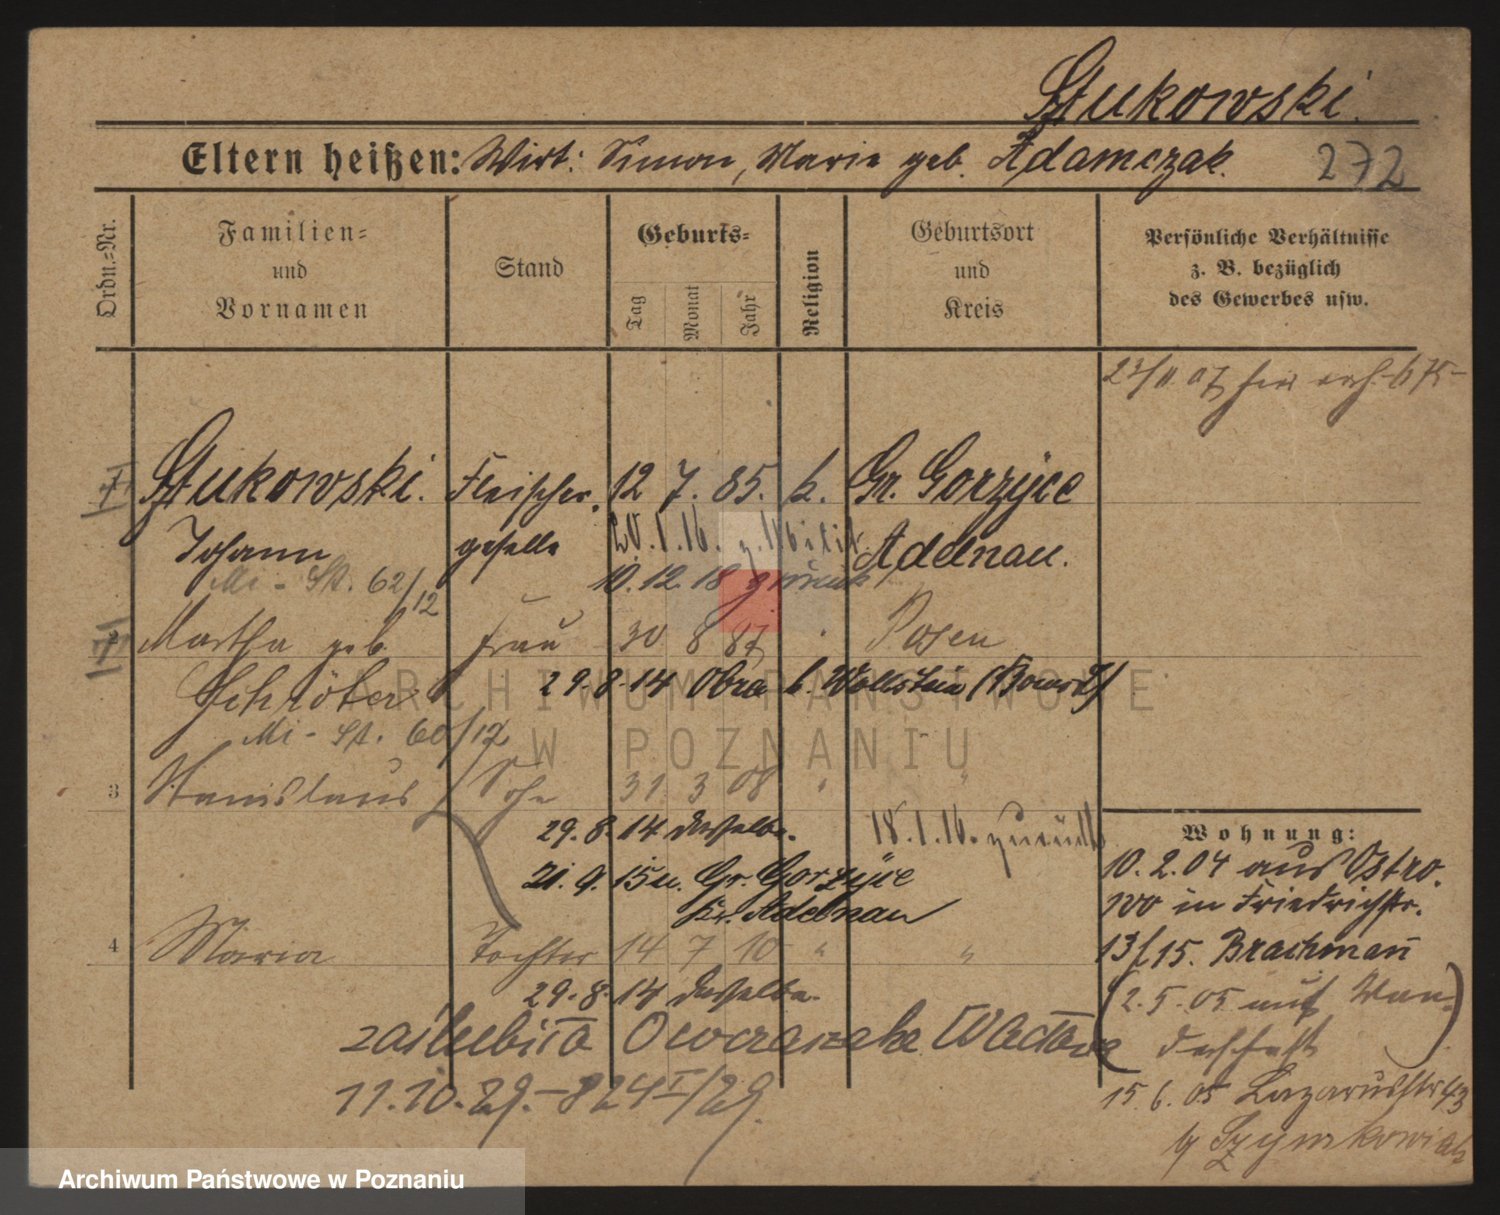 Stukowski.
Eltern heißen: Wirt: Simon, Marie geb. Adamczak. 272
Ordn.-Nr.
Familien- und Vornamen
Stand
Geburts-
Tag Monat Jahr
Religion
Geburtsort und Kreis
Persönliche Verhältnisse
z. B. bezüglich
des Gewerbes usw.
23/11.07
1 Stukowski. Fleischer- 12 7. 85. k. Gr. Gorzyce
Johann geselle 20.1.16. z. Militär Adelnau.
Mi - St. 62/12 10.12.18 zurück
2 Martha geb. Frau 30 8 87 " Posen
Schröter 29.8.14 Obra b. Wollstein (Bomst)
Mi - St. 60/12
3 Stanislaus Sohn 31 3 08 " "
29.8.14 daselbst. 18.1.16. zurück
21.9.15 u. Gr. Gorzyce
Kr. Adelnau
4 Maria Tochter 14 7 10 " "
29.8.14 daselbst.
11.10.29. - 824 I/29.
Wohnung:
10.2.04 aus Ostro-
wo in Friedrichstr.
13/15. Brachmann
(2.5.05 auf Wan-
derschaft)
15.6.05 Lazarusstr 43
b/ Szymkowiak
ARCHIWUM PAŃSTWOWE
W POZNANIU
Archiwum Państwowe w Poznaniu